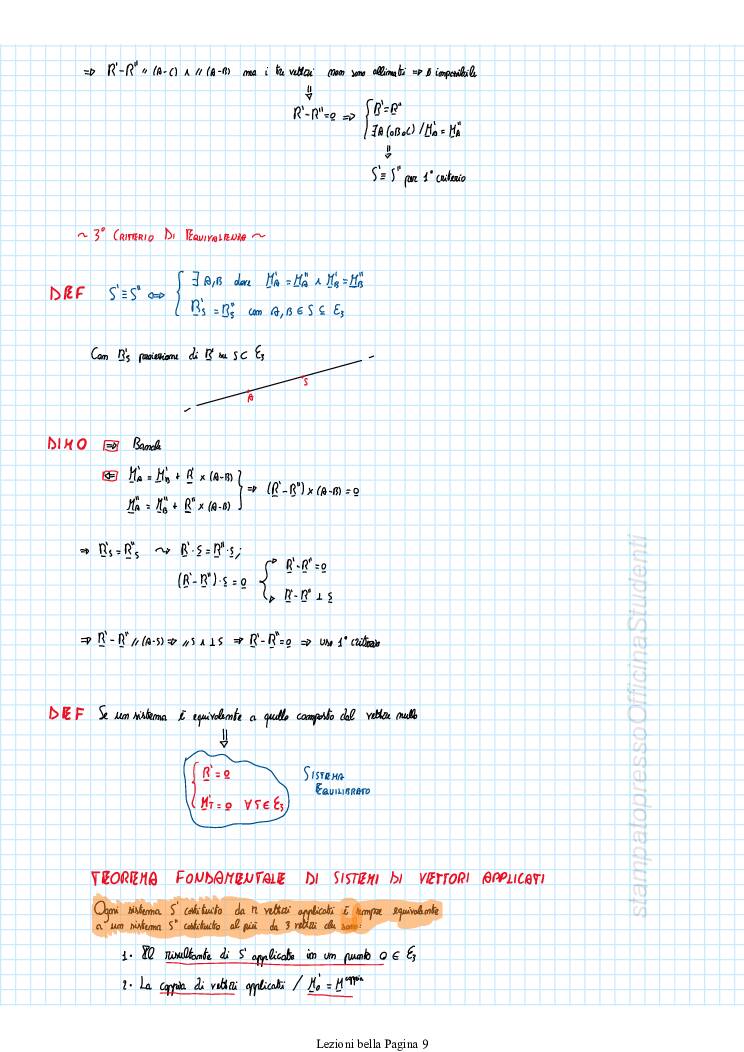 ⇒ R'-R'' // (A-C) ∧ // (A-B) ma i tre vettori non sono allineati ⇒ è impossibile
⇓
R'-R''=0 ⇒ { R'=R''
∃A(oBoC) / M'_A = M''_A
⇓
S'≡S'' per 1° criterio
~ 3° CRITERIO DI EQUIVALENZA ~
DEF S'≡S'' ⇔ { ∃ A,B dove M'_A = M''_A ∧ M'_B = M''_B
R'_S = R''_S con A,B ∈ S ⊆ E_3
Con R'_S proiezione di R' su S ⊂ E_3
A S
DIMO ⇒ Banale
⇐ M'_A = M'_B + R' × (A-B)
M''_A = M''_B + R'' × (A-B) } ⇒ (R'-R'') × (A-B) = 0
⇒ R'_S = R''_S ⤳ R'·s = R''·s;
(R'-R'')·s = 0 { R'-R''=0
R'-R'' ⊥ s
⇒ R'-R'' // (A-S) ⇒ // S ∧ ⊥ S ⇒ R'-R''=0 ⇒ uso 1° criterio
DEF Se un sistema è equivalente a quello composto dal vettore nullo
⇓
{ R'=0
M'_T=0 ∀T∈E_3
SISTEMA EQUILIBRATO
TEOREMA FONDAMENTALE DI SISTEMI DI VETTORI APPLICATI
Ogni sistema S' costituito da n vettori applicati è sempre equivalente
a un sistema S'' costituito al più da 3 vettori che sono:
1. Il risultante di S' applicato in un punto O ∈ E_3
2. La coppia di vettori applicati / M'_O = M^coppia
stampatopressoOfficinaStudenti
Lezioni bella Pagina 9